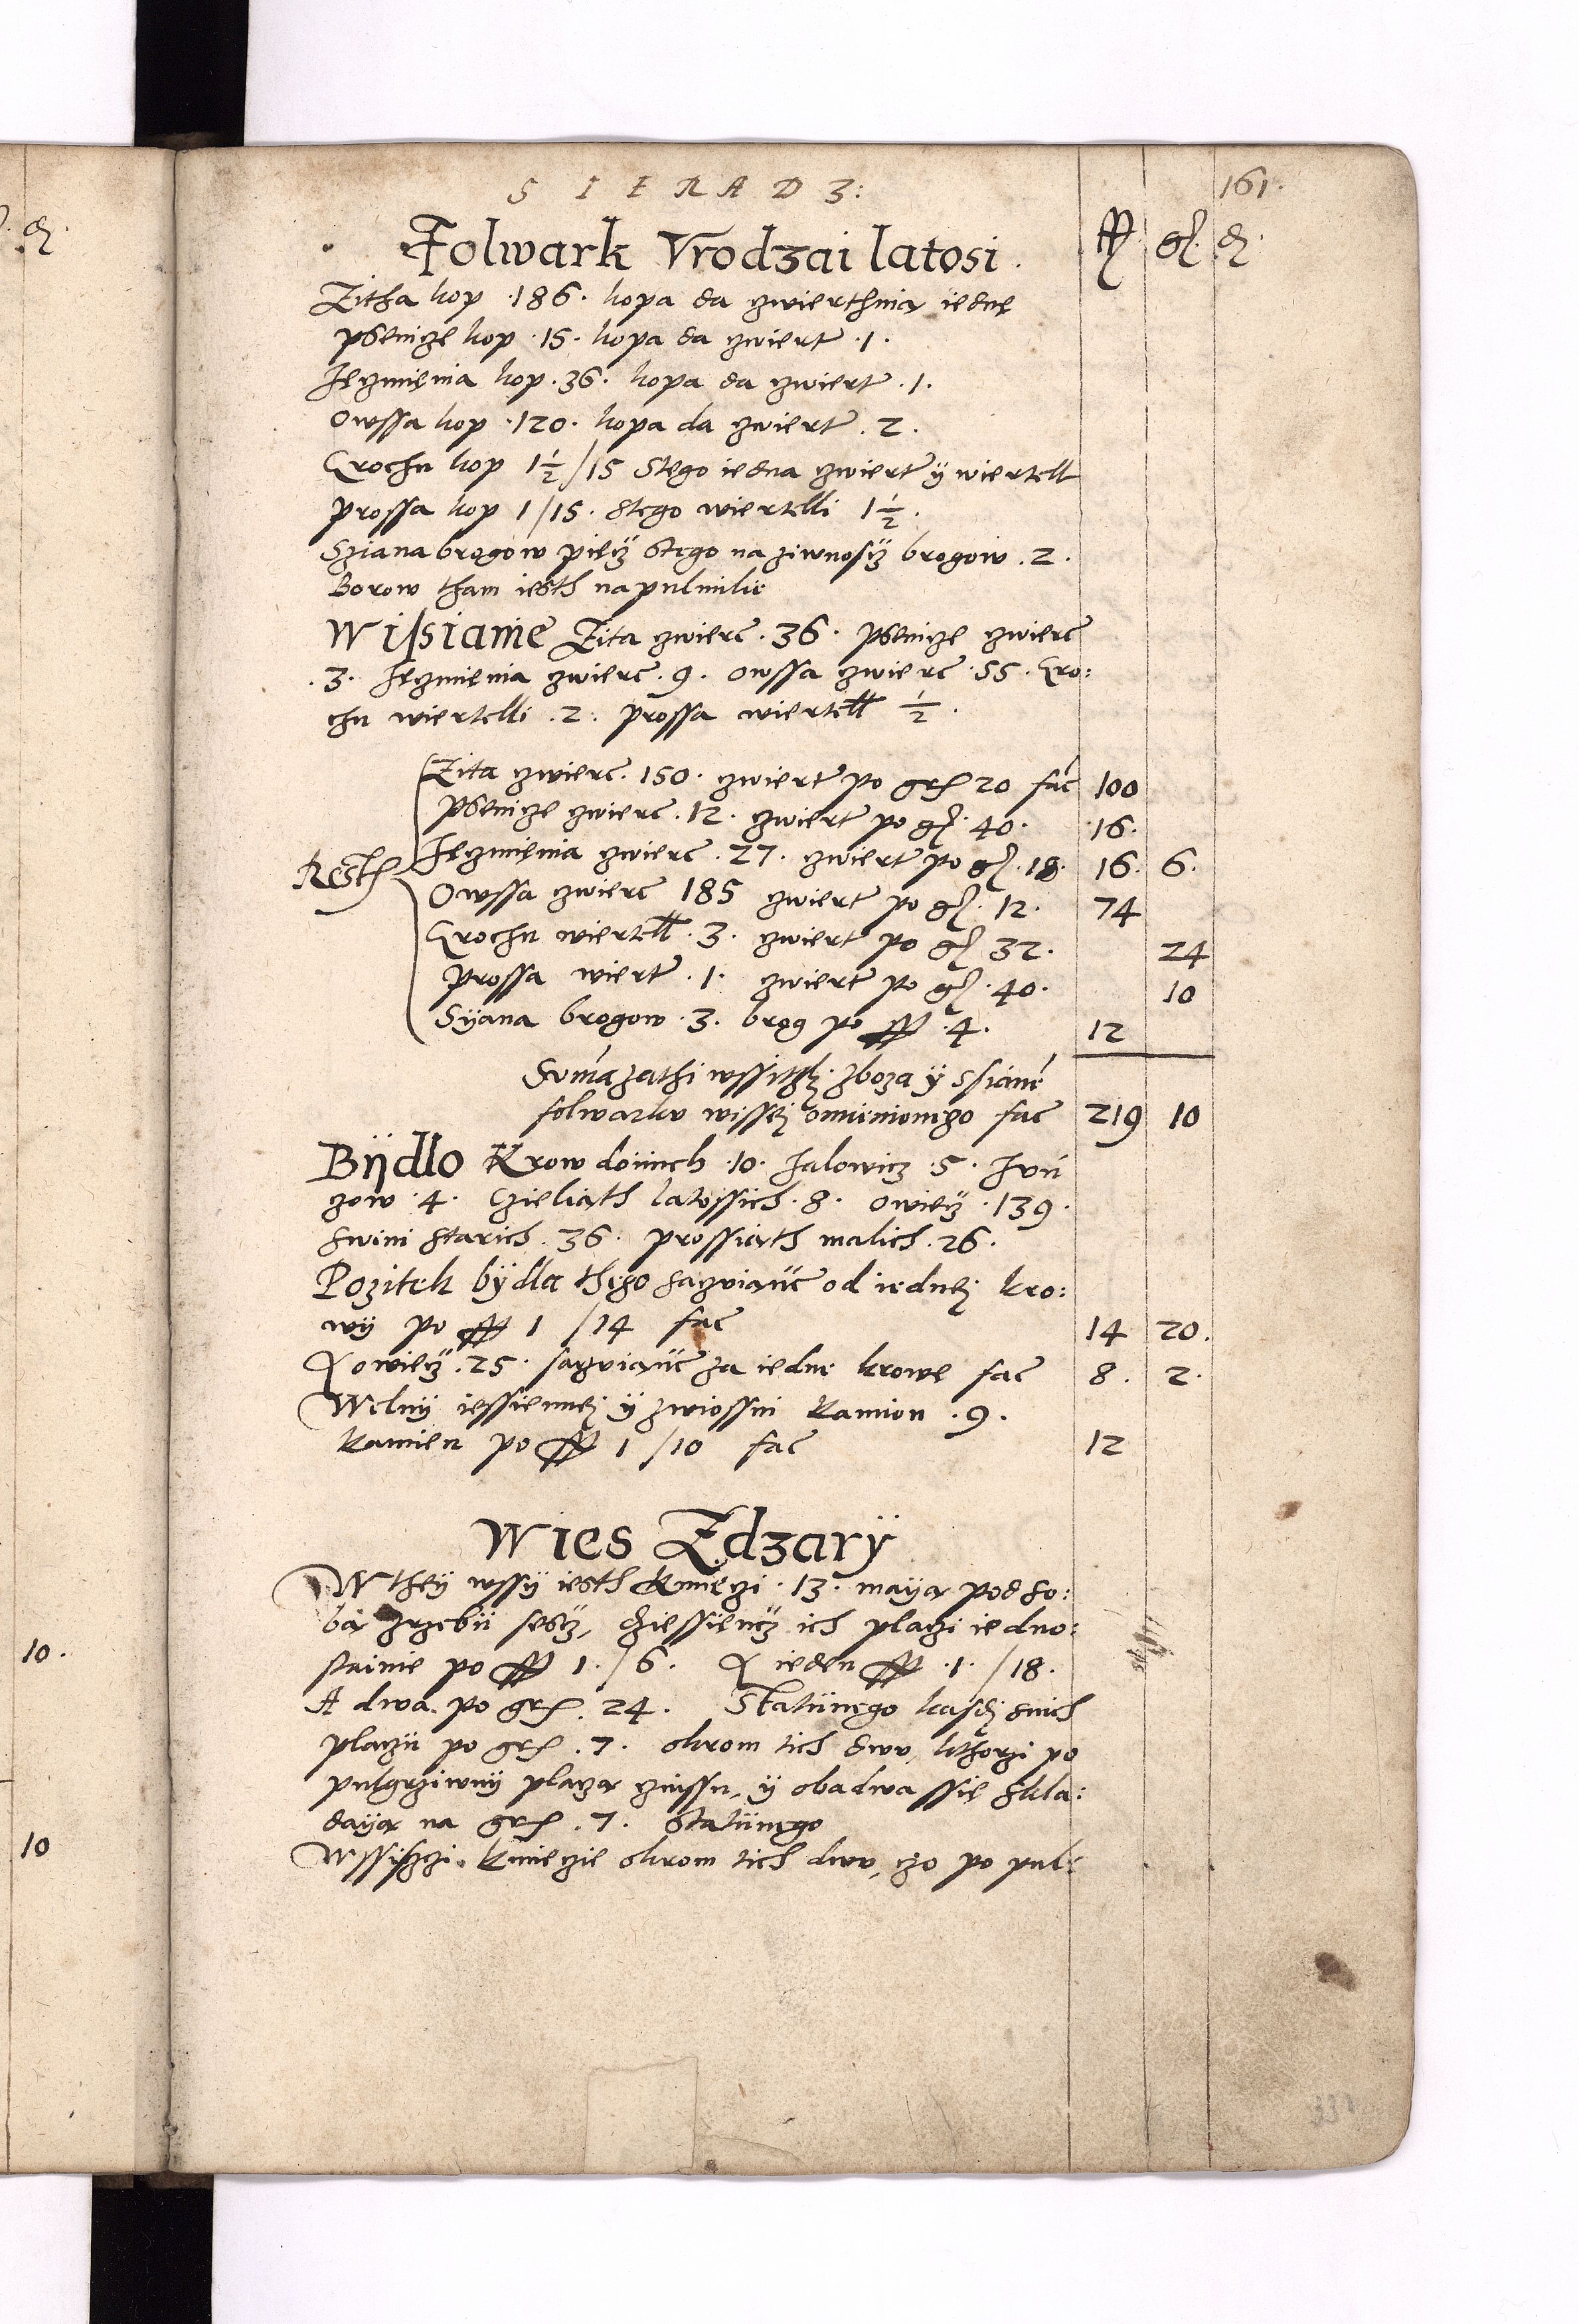 S I E R A D Z :
161.
Folwark Vrodzai latosi.
ff gl. d.
Zitha kop .186. kopa da czwierthnia iedne
psenicze kop .15. kopa da czwiert .1.
Jeczmienia kop .36. kopa da czwiert .1.
Owssa kop .120. kopa da czwiert .2.
Grochu kop 1½/15 Stego iedna czwiert ÿ wiertell
prossa kop 1/15. Stego wiertelli 1½.
Sziana brogow pięcz Stego na ziwnoscz brogow .2.
Borow tham iesth na pulmilie
Wissianie Zita czwierc .36. psenicze czwierc
.3. Jeczmienia czwierc .9. owssa czwierc .55. Gro:
chu wiertelli .2. prossa wiertell ½.
Resth
Zita czwierc .150. czwiert po grs 20 fac 100
psenicze czwierc .12. czwiert po gl. 40. 16.
Jeczmienia czwierc .27. czwiert po gl. 18. 16. 6.
Owssa czwierc 185 czwiert po gl. 12. 74
Grochu wiertell .3. czwiert po gl 32. 24
prossa wiert .1. czwiert po gl. 40. 10
Syana brogow .3. brog po ff .4. 12
Soma zathi wssitki zboza ÿ ssiano
folwarku wissej omienionego fac 219 10
Bÿdlo Krow doinich .10. Jalowicz .5. Jun
czow .4. Czieliath latossich .8. owiecz .139.
swini starich .36. prossiath malich .26.
Pozitek bÿdla thego saczuiąc od iednej kro:
wÿ po ff 1 /14 fac 14 20.
Z owiecz .25. saczuiąc za iedne krowe fac 8. 2.
Welnÿ iessiennej ÿ zwiossni kamion .9.
kamien po ff 1 /10 fac 12
Wies Zdzarÿ
W theÿ wssÿ iesth Kmieczi .13. maya pod so:
ba zrzebii sescz, dziessiencz ich placzi iedno:
stainie po ff 1./6. A ieden ff .1. /18.
A dwa po grs .24. Statiinego kasdj snich
placzii po grs .7. okrom tich dwu, kthorzi po
pulgrziwnÿ placza czinssu, ÿ obadwa ssie skla:
daya na grs .7. Statiinego
Wssisczi Kmieczie okrom tich dwu, czo po pul:
10.
10